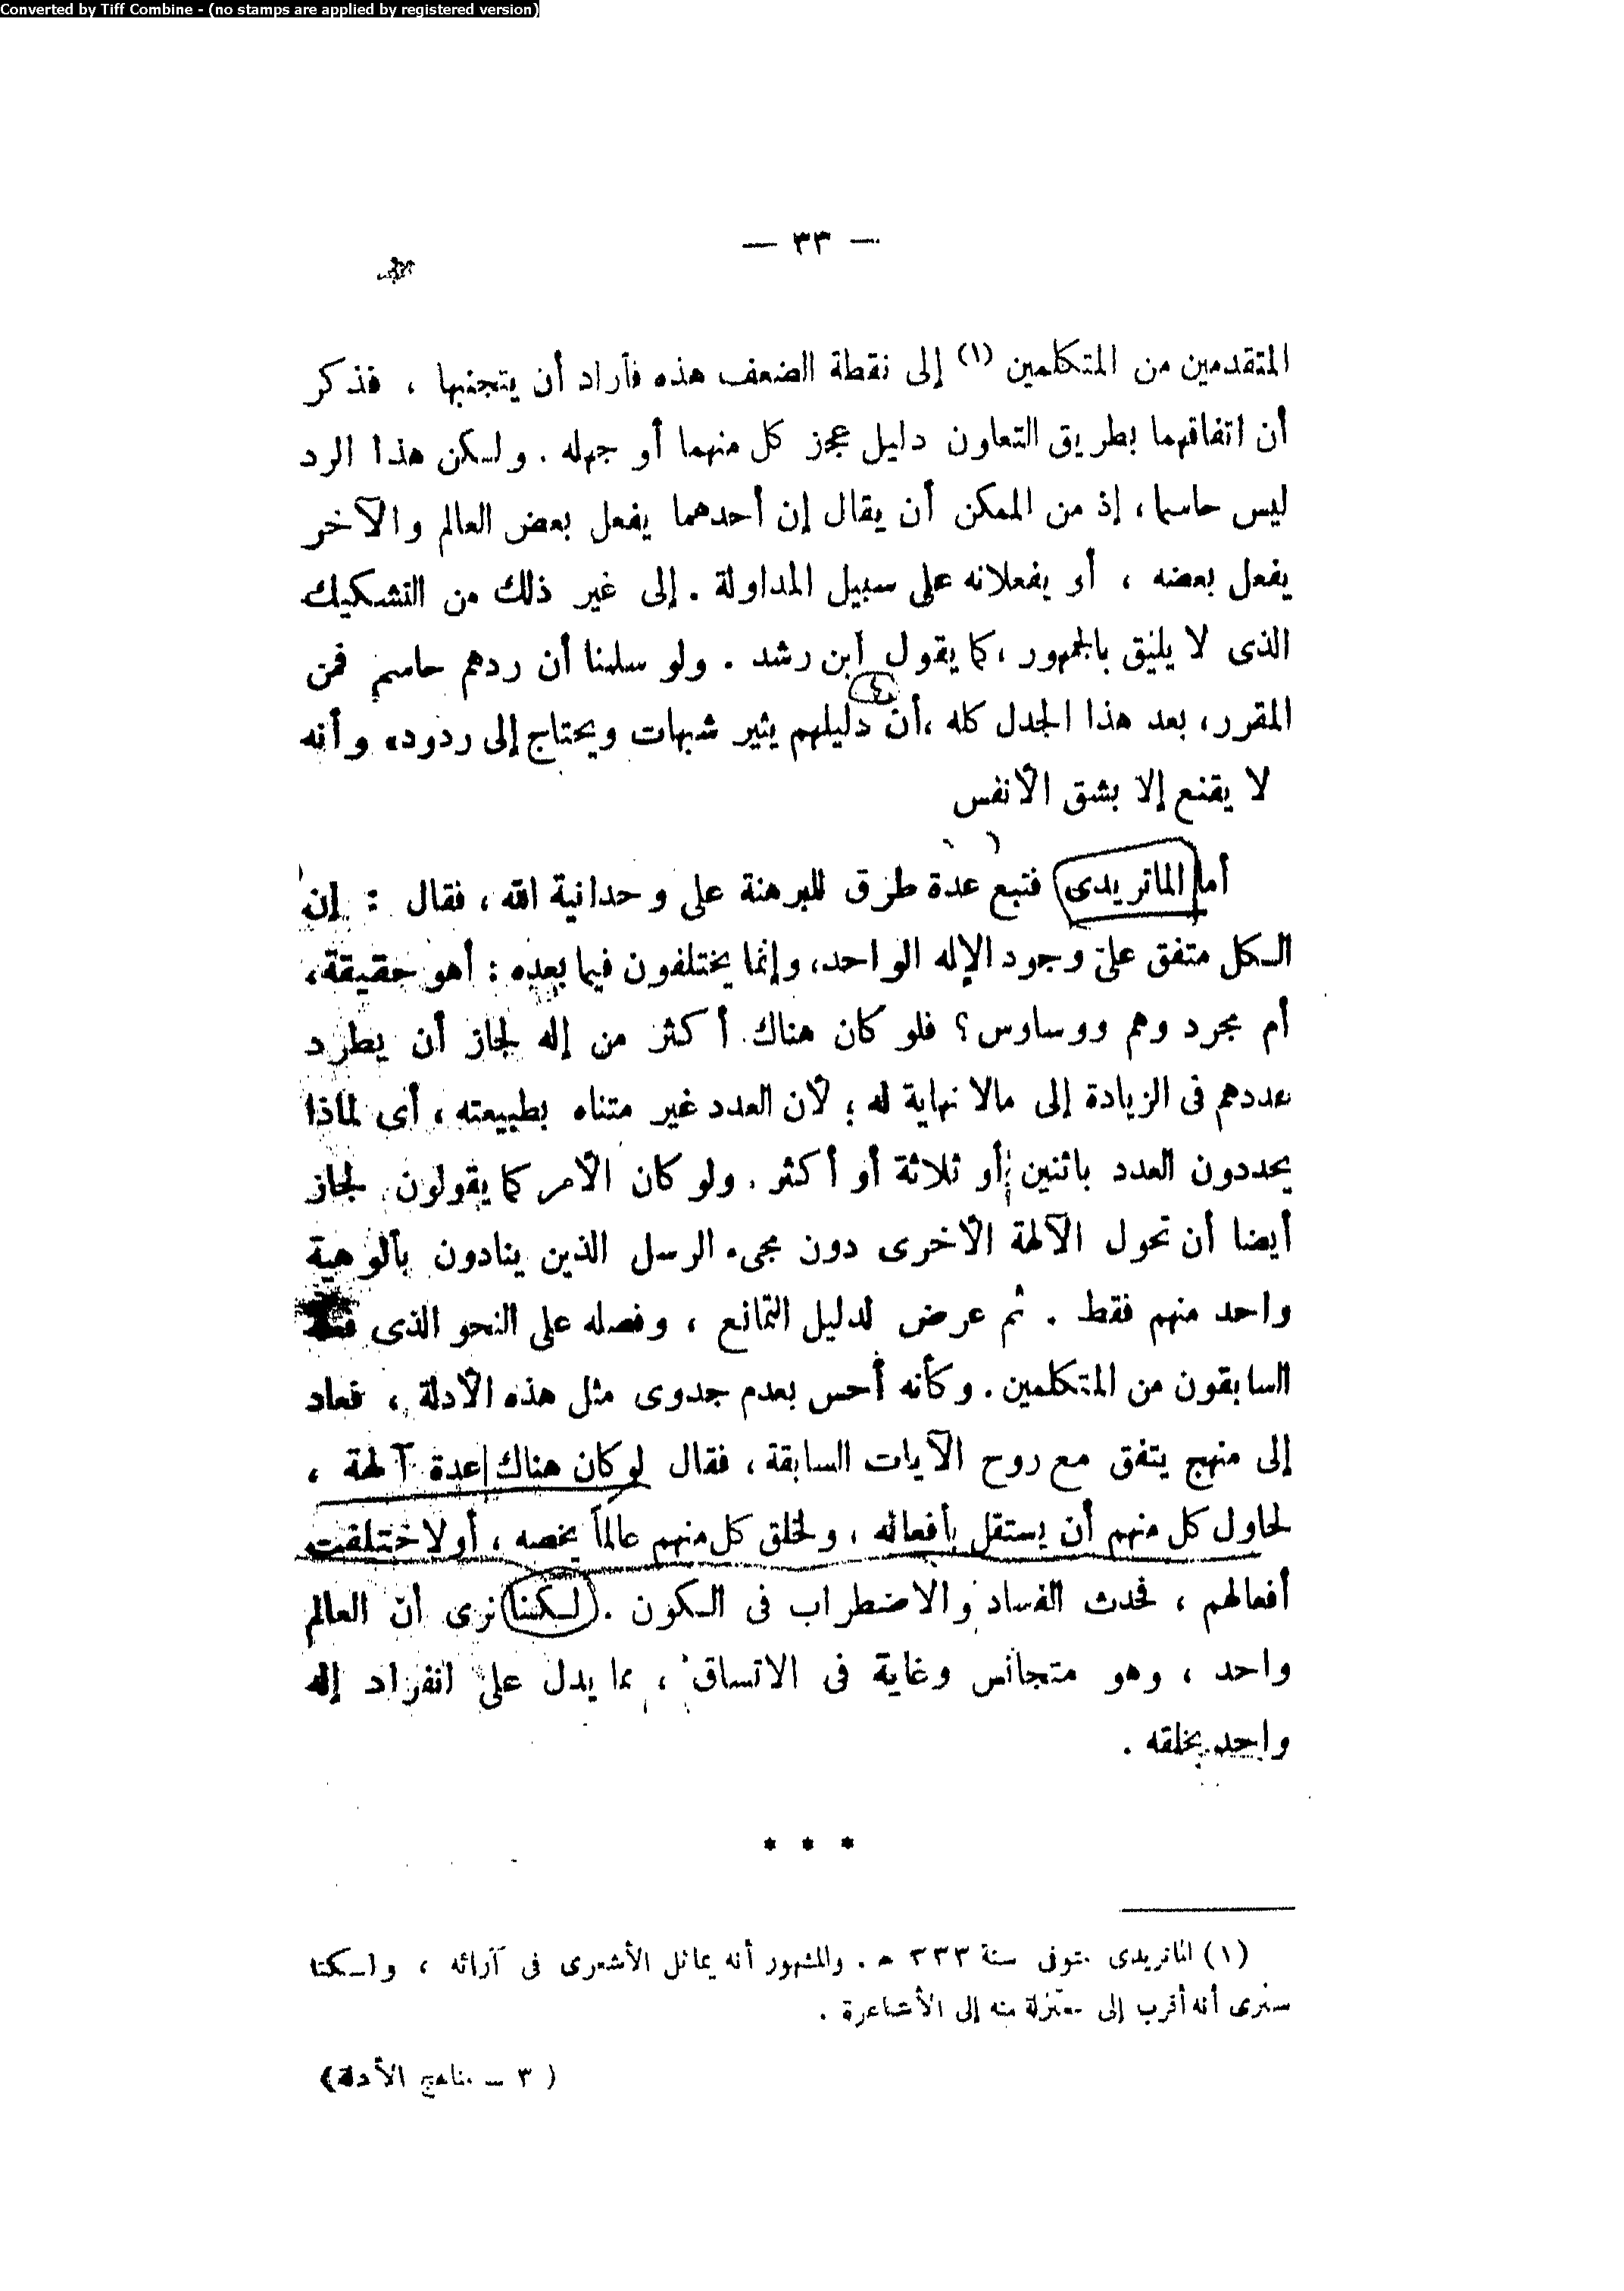 Converted by Tiff Combine - (no stamps are applied by registered version)
— ٣٣ —
المتقدمين من المتكلمين (١) إلى نقطة الضعف هذه فأراد أن يتجنبها ، فذكر
أن اتفاقهما بطريق التعاون دليل عجز كل منهما أو جهله . ولكن هذا الرد
ليس حاسما ، إذ من الممكن أن يقال إن أحدهما يفعل بعض العالم والآخر
يفعل بعضه ، أو يفعلانه على سبيل المداولة . إلى غير ذلك من التشكيك
الذى لا يليق بالجمهور ، كما يقول ابن رشد . ولو سلمنا أن ردهم حاسم فمن
المقرر ، بعد هذا الجدل كله ، أن دليلهم يثير شبهات ويحتاج إلى ردود، وأنه
لا يقنع إلا بشق الأنفس
أما الماتريدى فتبع عدة طرق للبرهنة على وحدانية الله ، فقال : إن
الكل متفق على وجود الإله الواحد ، وإنما يختلفون فيما بعده : أهو حقيقة ،
أم مجرد وهم ووساوس ؟ فلو كان هناك أكثر من إله لجاز أن يطرد
عددهم فى الزيادة إلى مالا نهاية له ؛ لأن العدد غير متناه بطبيعته ، أى لماذا
يحددون العدد باثنين أو ثلاثة أو أكثر . ولو كان الأمر كما يقولون لجاز
أيضا أن تحول الآلهة الأخرى دون مجىء الرسل الذين ينادون بألوهية
واحد منهم فقط . ثم عرض لدليل التمانع ، وفصله على النحو الذى
السابقون من المتكلمين . وكأنه أحس بعدم جدوى مثل هذه الأدلة ، فعاد
إلى منهج يتفق مع روح الآيات السابقة ، فقال لو كان هناك عدة آلهة ،
لحاول كل منهم أن يستقل بأفعاله ، ولخلق كل منهم عالماً يخصه ، أو لاختلفت
أفعالهم ، فحدث الفساد والاضطراب فى الكون . لكننا نرى أن العالم
واحد ، وهو متجانس وغاية فى الاتساق ، مما يدل على انفراد إله
واحد بخلقه .
* * *
(١) الماتريدى توفى سنة ٣٣٣ هـ . والمشهور أنه يماثل الأشعرى فى آرائه ، ولكنا
سنرى أنه أقرب إلى معتزلة منه إلى الأشاعرة .
( ٣ – مناهج الأدلة )